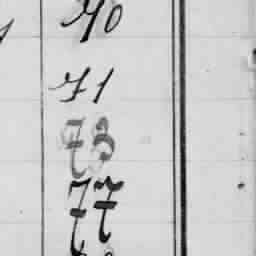 70
71
73
77